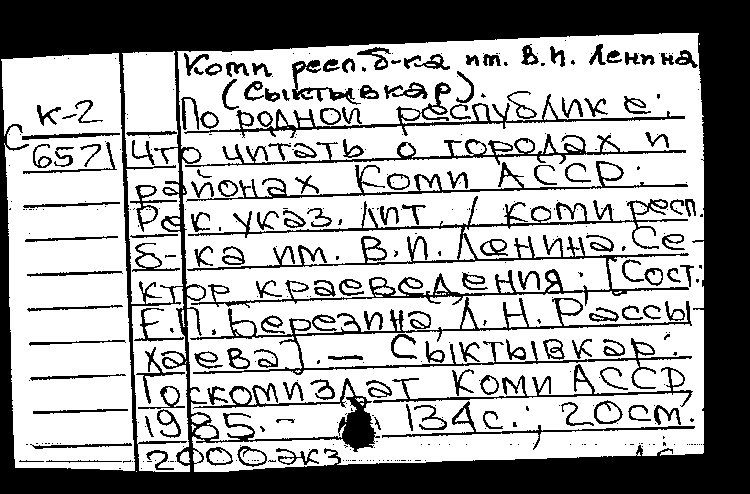 Коми респ. б-ка им. В.И. Ленина
(Сыктывкар).
К-2
По родной республике:
С
6571 Что читать о городах и
районах Коми АССР:
Рек. указ. лит. / Коми респ.
б-ка им. В.И. Ленина. Се-
ктор краеведения; [Сост.:
Е.П. Березина, Л.Н. Рассы-
хаева]. — Сыктывкар:
Госкомиздат Коми АССР,
1985. - 134с.; 20см.
2000 экз